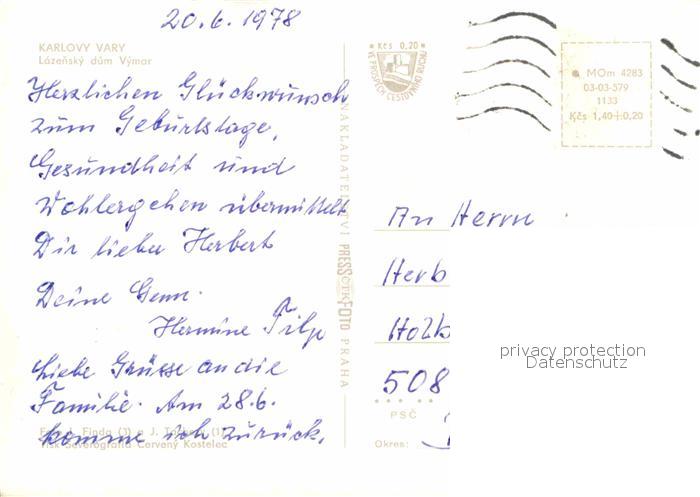 20.6.1978
KARLOVY VARY
Lázeňský dům Výmar
Herzlichen Glückwunsch
zum Geburtstage,
Gesundheit und
Wohlergehen übermittelt
Dir lieber Herbert
Deine Genn.
Hermine
Liebe Grüsse an die
Familie. Am 28.6.
komme ich zurück.
Tisk Severografia Červený Kostelec
NAKLADATELSTVÍ PRESSFOTO PRAHA
Kčs 0,20
VE PROSPĚCH CESTOVNÍHO RUCHU
MOm 4283
03-03-579
1133
Kčs 1,40+0,20
An Herrn
Herb
Holk
508
PSČ
Okres:
privacy protection
Datenschutz